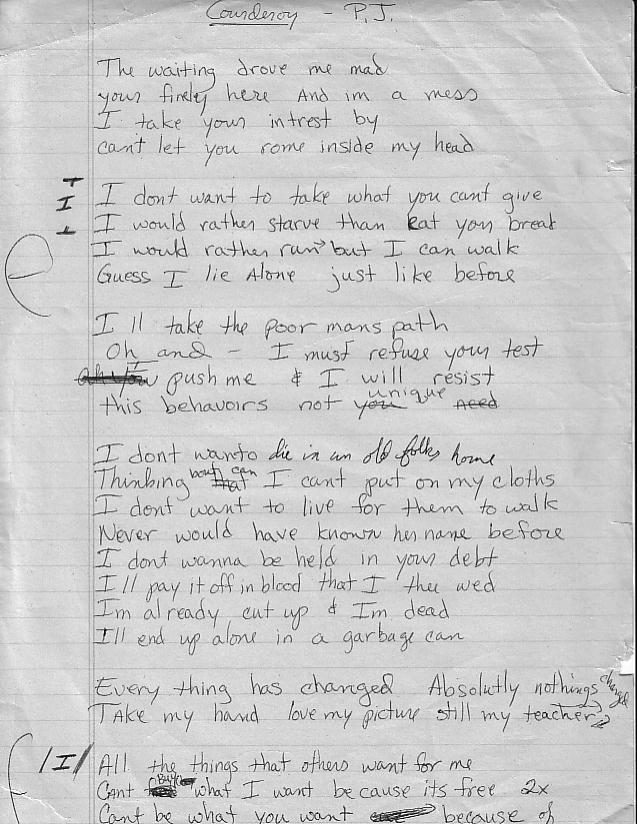 Courderoy - P.J.
The waiting drove me mad
your finely here And im a mess
I take your intrest by
cant let you rome inside my head
I
I dont want to take what you cant give
I would rather starve than eat your break
I would rather run but I can walk
Guess I lie Alone just like before
I ll take the poor mans path
Oh and - I must refuse your test
push me & I will resist
this behavoirs not you unique need
I dont wanto die in an old folks home
Thinking bout can that I cant put on my cloths
I dont want to live for them to walk
Never would have known her name before
I dont wanna be held in your debt
I ll pay it off in blood that I thee wed
Im already cut up & Im dead
I ll end up alone in a garbage can
Every thing has changed Absolutly nothings changed
TAke my hand love my picture still my teacher
/I/ All the things that others want for me
Cant Buy what I want because its free 2x
Cant be what you want because of